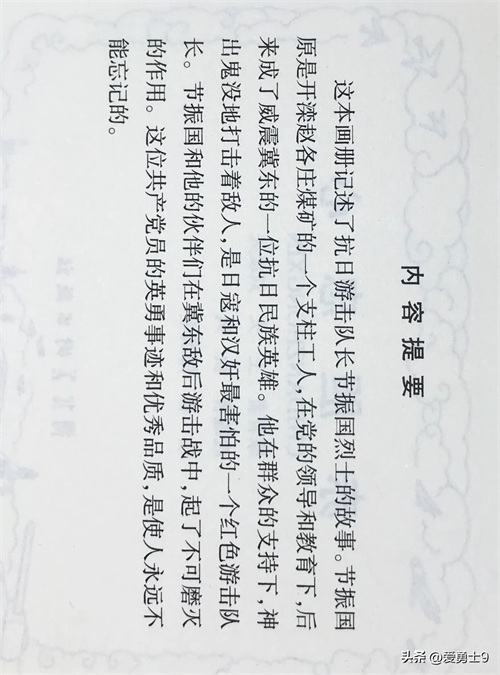 内容提要
这本画册记述了抗日游击队长节振国烈士的故事。节振国
原是开滦赵各庄煤矿的一个支柱工人,在党的领导和教育下,后
来成了威震冀东的一位抗日民族英雄。他在群众的支持下,神
出鬼没地打击着敌人,是日寇和汉奸最害怕的一个红色游击队
长。节振国和他的伙伴们在冀东敌后游击战中,起了不可磨灭
的作用。这位共产党员的英勇事迹和优秀品质,是使人永远不
能忘记的。
头条 @爱勇士9